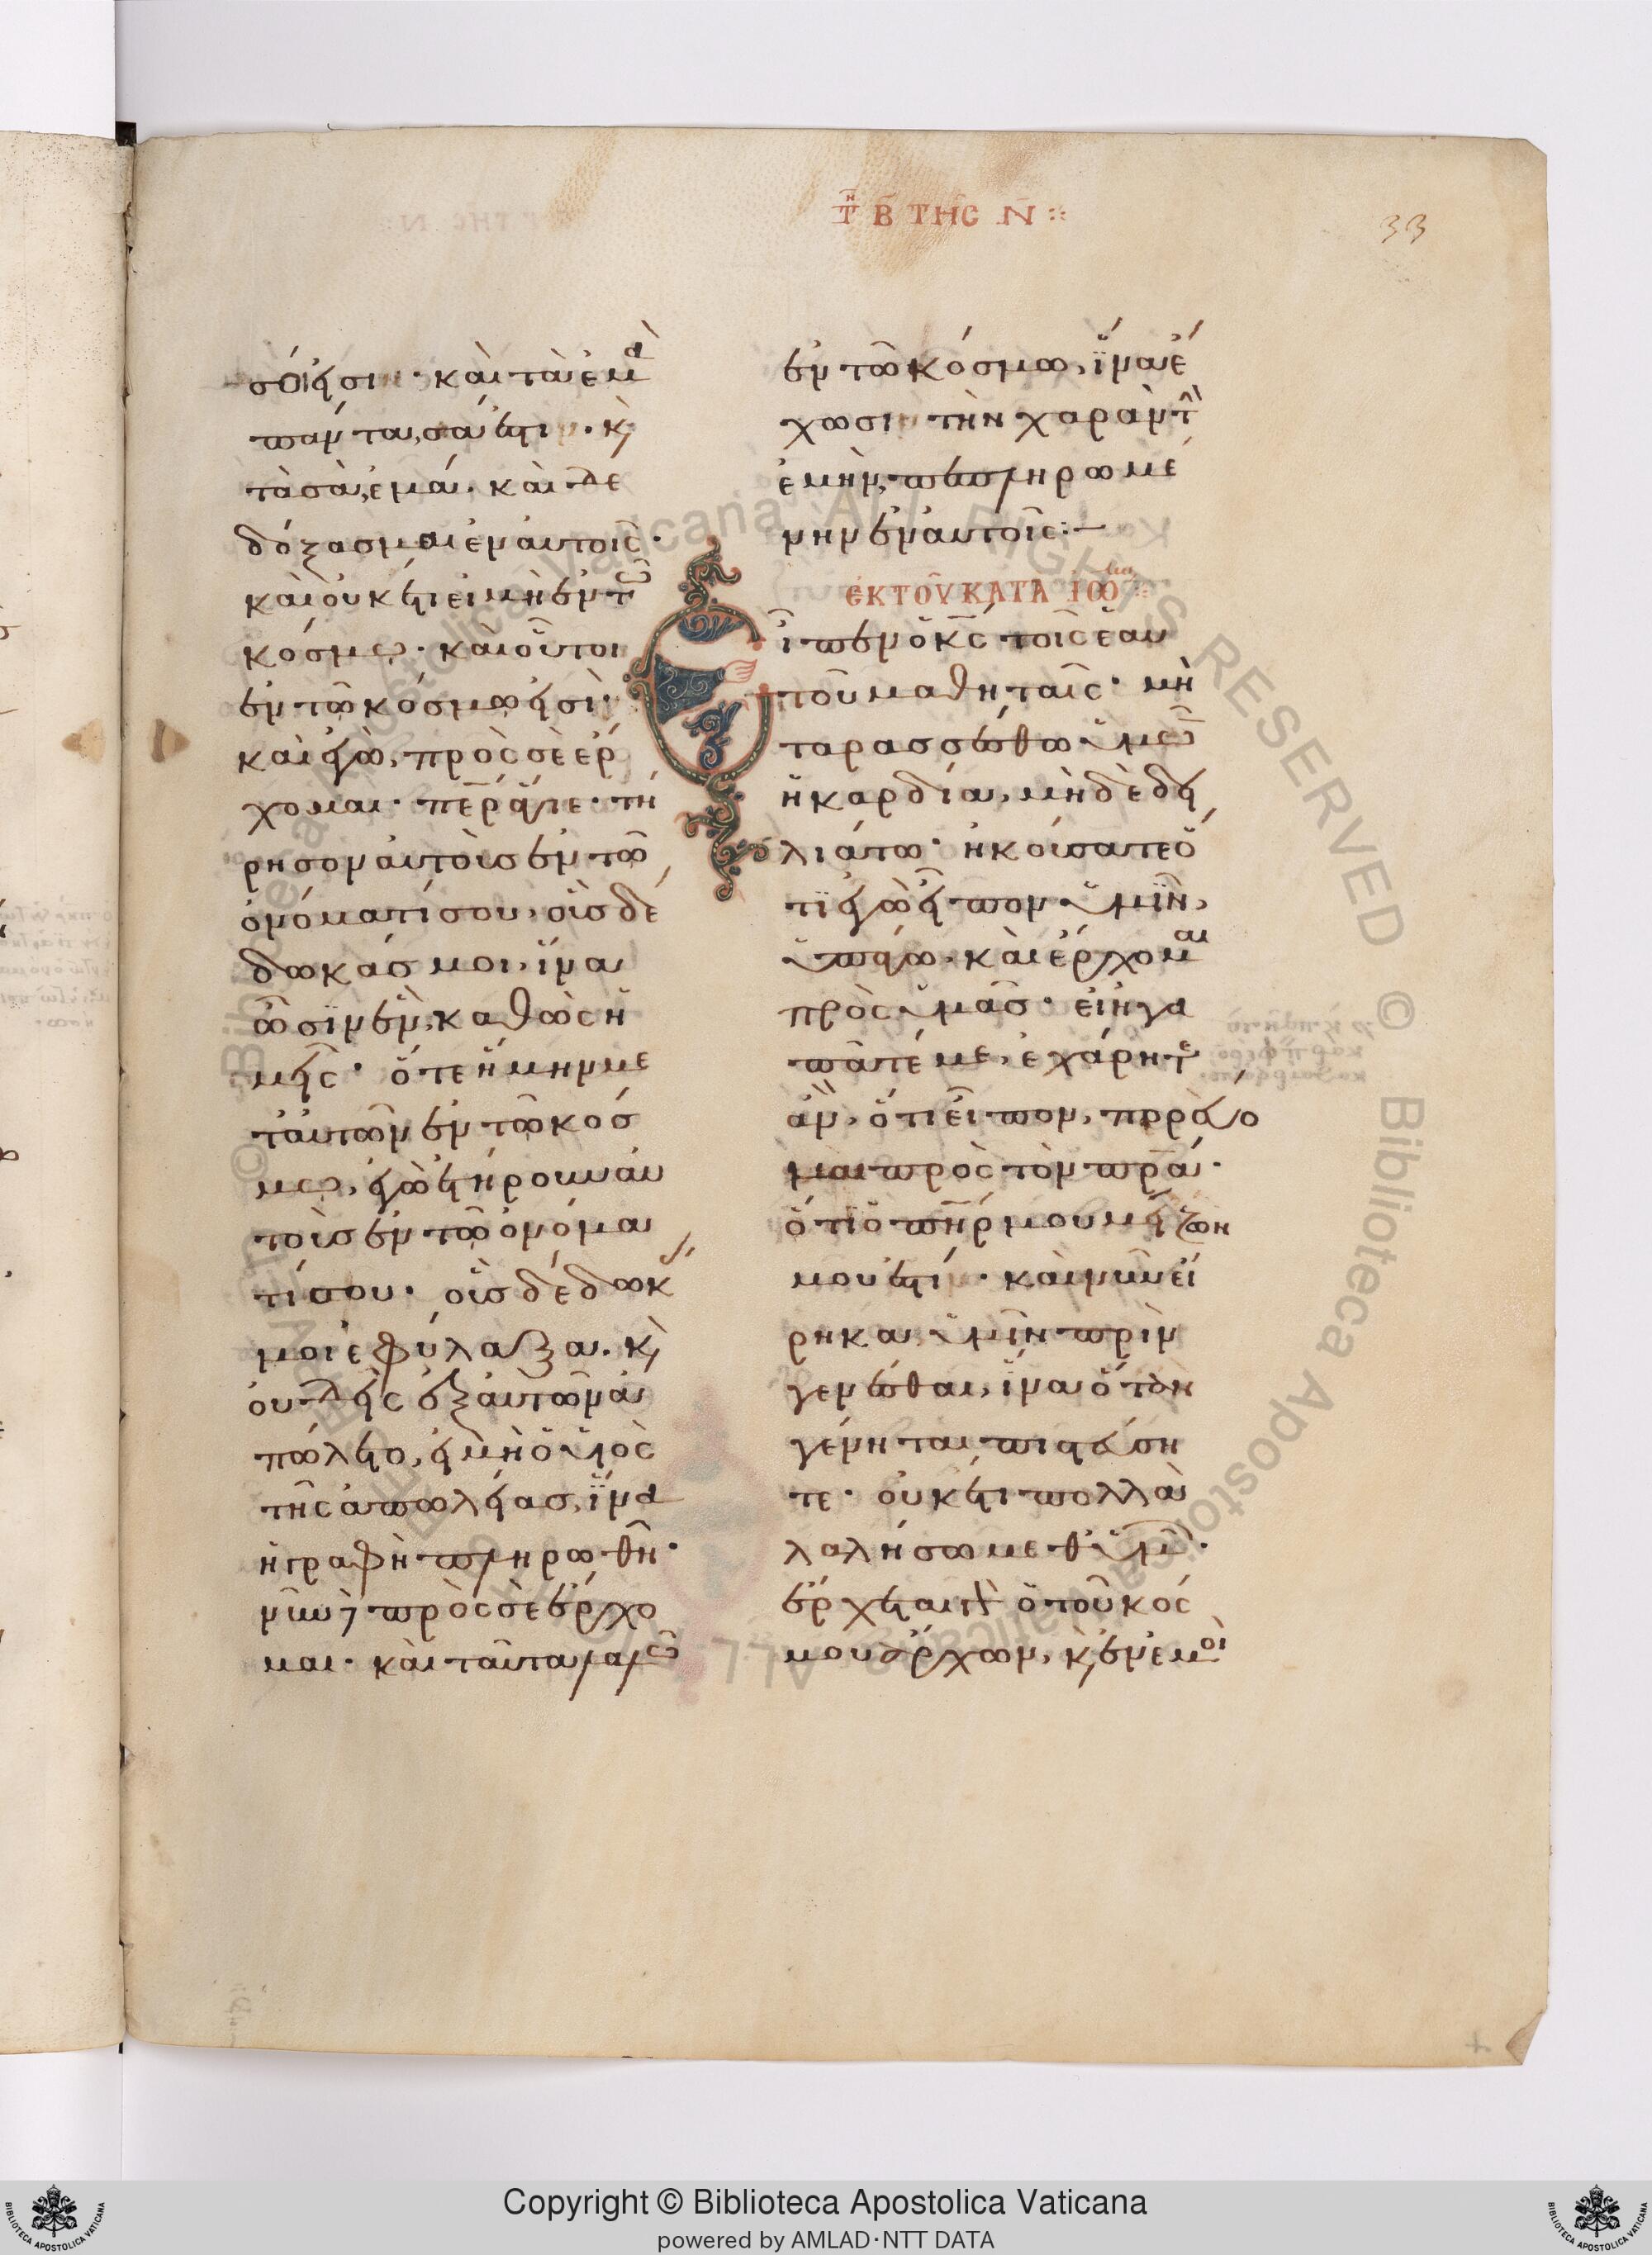 Τῇ Β ΤΗϹ Ν
33
σοί εἰσιν· καὶ τὰ ἐμὰ
πάντα, σά ἐστιν· κ
τὰ σὰ, ἐμά· καὶ δε
δόξασμαι ἐν αὐτοῖς·
καὶ οὐκ ἔτι εἰμὴ ἐν τῶ
κόσμω· καὶ οὗτοι
ἐν τῶ κόσμω εἰσὶ·
καὶ ἐγὼ, πρὸς σὲ ἔρ
χομαι· περ ἅγιε· τή
ρησον αὐτοὺς ἐν τῶ
ὀνόματί σου, οὓς δέ
δωκάς μοι, ἵνα
ὦσϊν ἓν, καθὼς ἡ
μεῖς· ὅτε ἤμην με
τ' αὐτῶν ἐν τῶ κόσ
μω, ἐγὼ ἐτήρουν αὐ
τοὺς ἐν τῶ ὀνόμα
τί σου· οὓς δέδωκάς
μοι ἐφύλαξα. κ
οὐδεὶς ἐξ αὐτῶν ἀ
πώλετο, εἰ μὴ ὁ υἱὸς
τῆς ἀπωλείας, ἵνα
ἡ γραφὴ πληρωθῆ·
νῦν δὲ πρὸς σὲ ἔρχο
μαι· καὶ ταῦτα λαλῶ
ἐν τῶ κόσμω, ἵνα ἔ
χωσιν τὴν χαρὰν τὴν
ἐμὴν, πεπληρωμέ
νην ἐν αὐτοῖς:–
ἐΚ ΤΟῦ ΚΑΤΑ ΙΩ
Εἶπεν ὁ κς τοῖς ἑαυ
τοῦ μαθηταῖς· μὴ
ταρασσέσθω ὑμῶν
ἡ καρδία, μὴ δὲ δει
λιάτω· ἠκούσατε ὅ
τι ἐγὼ εἶπον ὑμῖν,
ὑπάγω, καὶ ἔρχομαι
πρὸς ὑμᾶς· εἰ ἠγα
πᾶτέ με, ἐχάρητε
ἂν, ὅτι εἶπον, πορεύο
μαι πρὸς τὸν πρα·
ὅτι ὁ πηρ μου μείζων
μου ἐστίν· καὶ νῦν εἴ
ρηκα ὑμῖν πρὶν
γενέσθαι, ἵνα ὅταν
γένηται πιστεύση
τε· οὐκ ἔτι πολλὰ
λαλήσω μεθ' ὑμῶν·
ἔρχεται γὰρ ὁ τοῦ κόσ
μου ἄρχων, κ ἐν ἐμοὶ
Copyright © Biblioteca Apostolica Vaticana
powered by AMLAD·NTT DATA